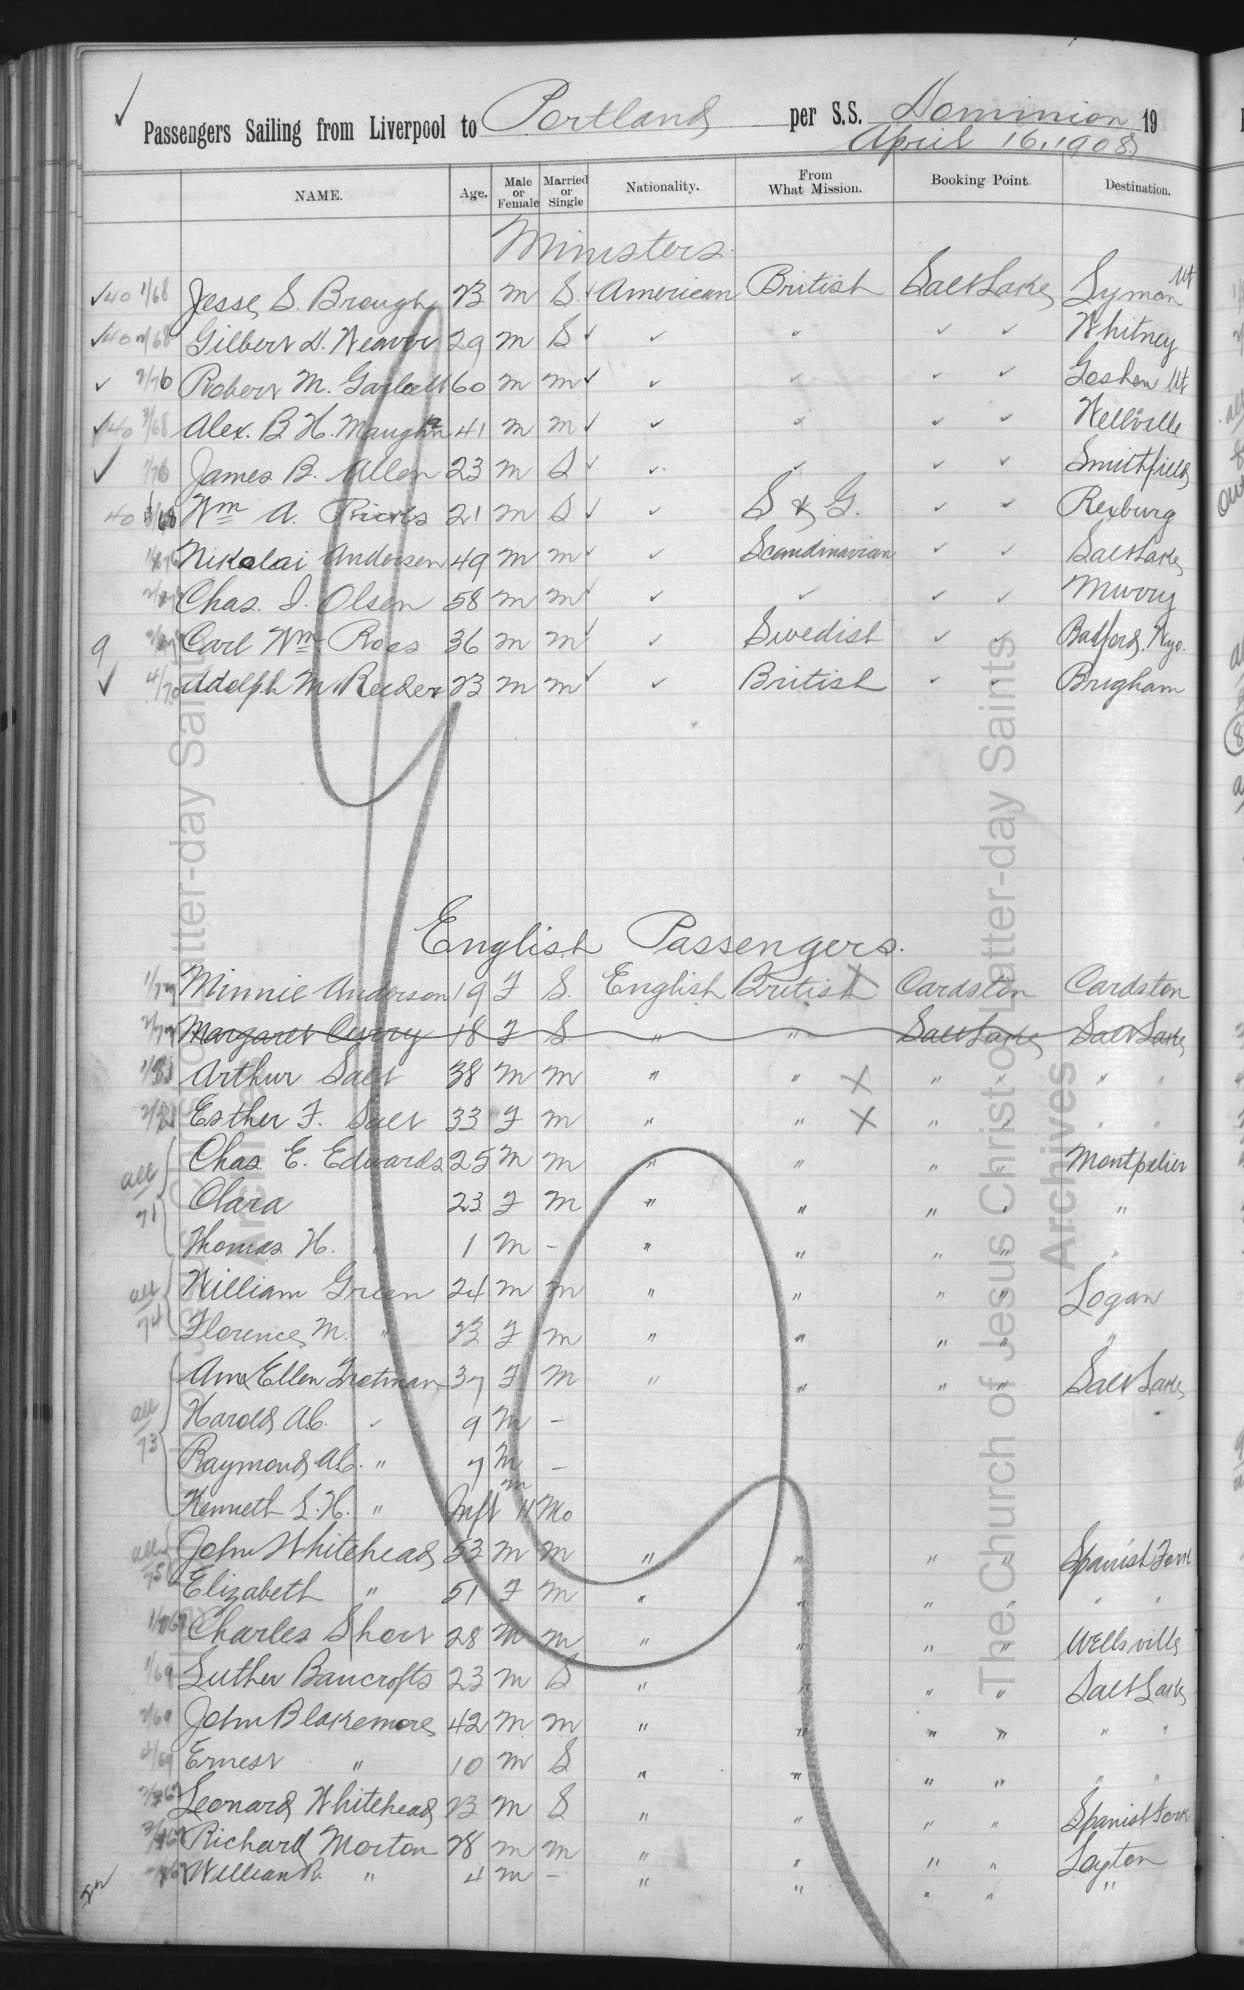 Passengers Sailing from Liverpool to Portland per S.S. Dominion 19
April 16, 1908
NAME. Age. Male or Female Married or Single Nationality. From What Mission. Booking Point. Destination.
Ministers.
✓ 40 1/68 Jesse S. Brough 23 m S. ✓ American British Salt Lake Lyman Ut
✓ 40 2/68 Gilbert D. Weaver 29 m S ✓ ✓ ✓ ✓ ✓ Whitney
✓ 2/76 Robert M. 60 m m ✓ ✓ ✓ ✓ ✓ Goshen Ut
✓ 40 3/68 Alex. B. H. Maughan 41 m m ✓ ✓ ✓ ✓ ✓ Wellville
✓ 1/76 James B. Allen 23 m S ✓ ✓ ✓ ✓ ✓ Smithfield
40 /68 Wm A. Ricks 21 m S ✓ ✓ S & G. ✓ ✓ Rexburg
Nikolai Andersen 49 m m ✓ ✓ Scandinavian ✓ ✓ Salt Lake
Chas. I. Olsen 58 m m ✓ ✓ ✓ ✓ ✓ Murry
9 Carl Wm Ross 36 m m ✓ ✓ Swedish ✓ ✓ Wyo.
✓ Adolph M. Reeder 23 m m ✓ ✓ British ✓ ✓ Brigham
English Passengers.
Minnie Anderson 19 F S. English British X Cardston Cardston
Margaret 18 F S " " Salt Lake Salt Lake
Arthur Salt 38 m m " " X " " " "
Esther F. Salt 33 F m " " X " " " "
all 71 Chas. E. Edwards 25 m m " " " " Montpelier
Clara 23 F m " " " " "
Thomas H. " 1 m - " " " " "
all 74 William Green 24 m m " " " " Logan
Florence M. " 23 F m " " " " "
all 73 Ellen Trotman 37 F m " " " " Salt Lake
Harold A.C. " 9 m -
Raymond A.C. " 7 m -
Kenneth S. H. " Inft m 11 Mo
all 75 John Whitehead 53 m m " " " " Spanish Fork
Elizabeth " 51 F m " " " " " "
Charles Short 28 m m " " " " Wellsville
1/69 Luther Bancrofts 23 m S " " " " Salt Lake
2/69 John Blakemore 42 m m " " " " " "
4/69 Ernest " 10 m S " " " " " "
Leonard Whitehead 23 m S " " " " Spanish Fork
Richard Morton 28 m m " " " " Layton
William R. " 4 m - " " " " "
The Church of Jesus Christ of Latter-day Saints
Archives